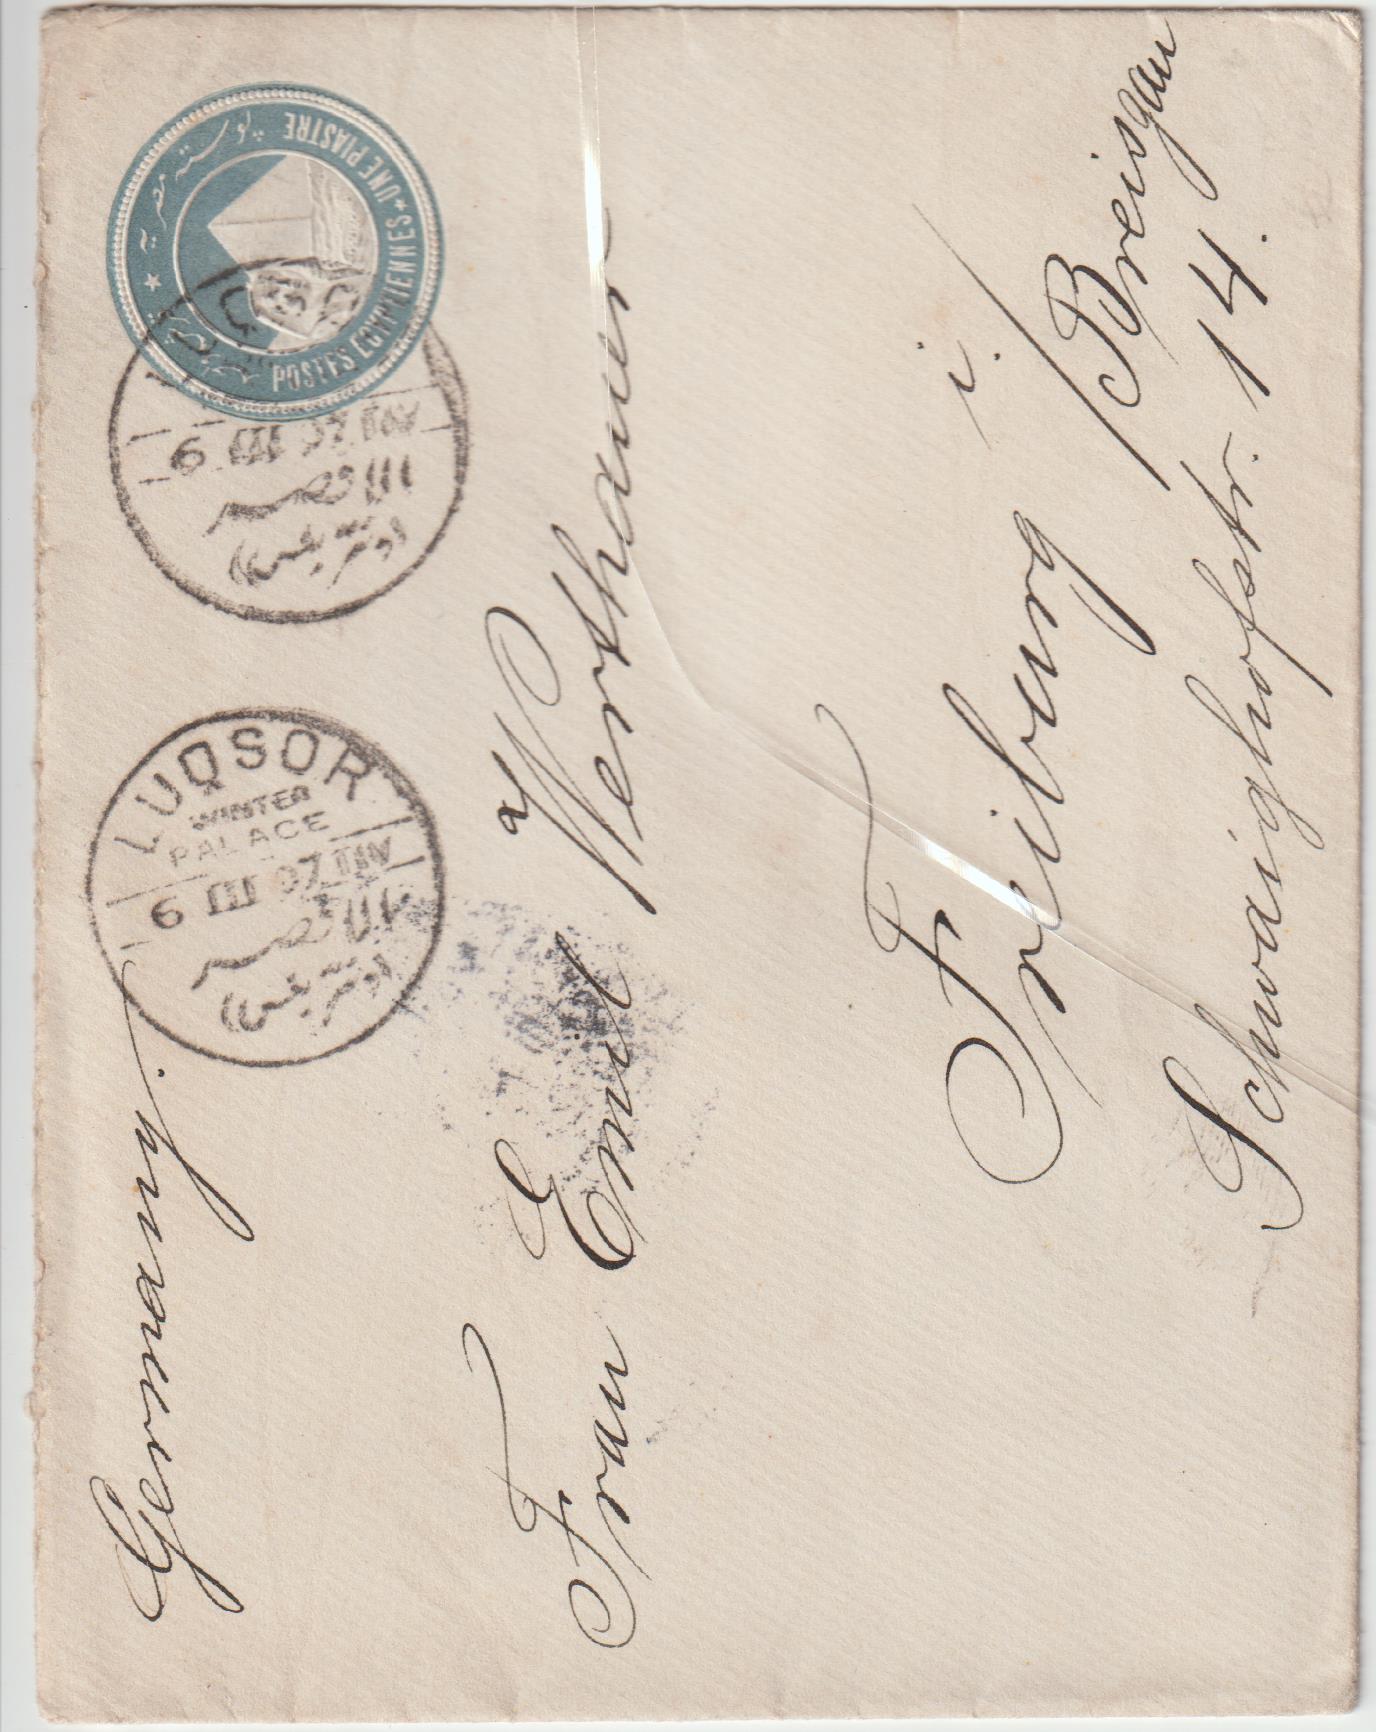 Germany.
Frau Emil Werthauer
Freiburg i/Breisgau
Schwaighofstr. 14.
LUQSOR
WINTER
PALACE
6 III 07
الاقصر
POSTES EGYPTIENNES * UNE PIASTRE
بوسته مصرية
6 III 07
الاقصر